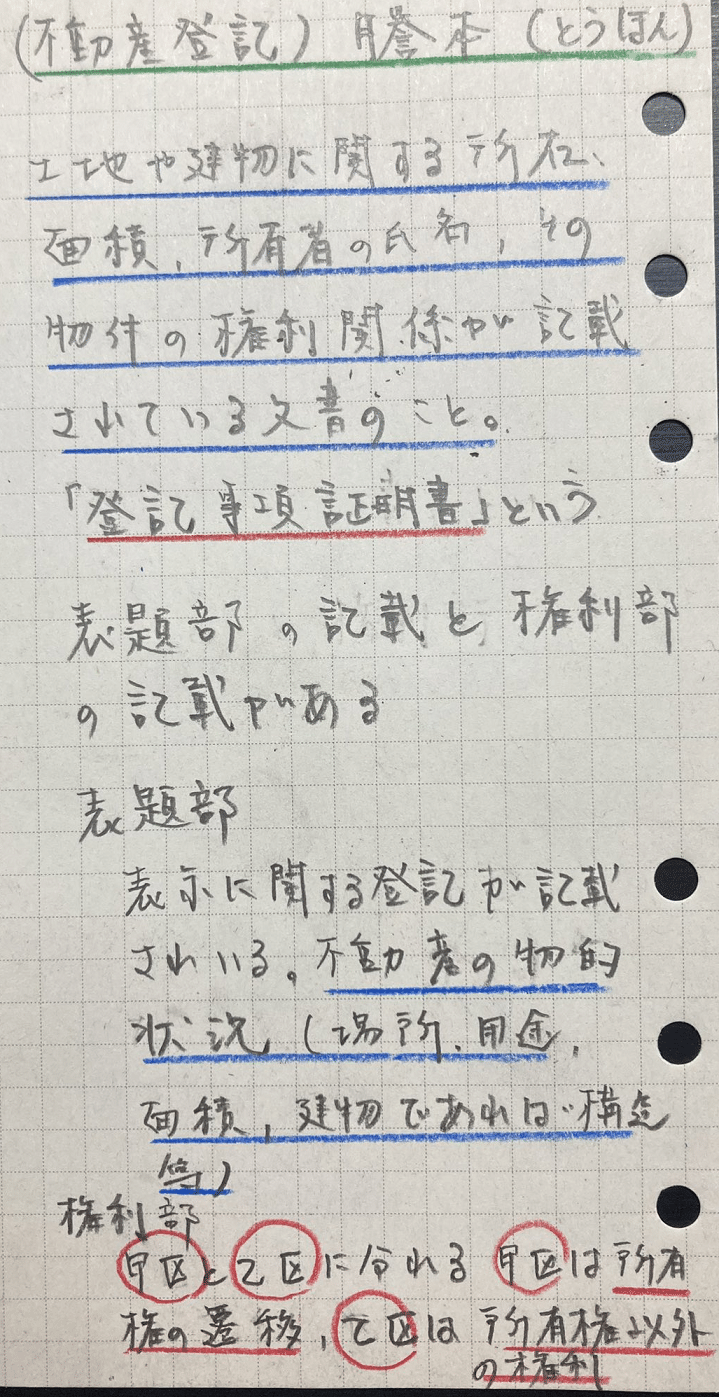 (不動産登記) 謄本 (とうほん)
土地や建物に関する所在、
面積、所有者の氏名、その
物件の権利関係が記載
されている文書のこと。
「登記事項証明書」という
表題部の記載と権利部
の記載がある
表題部
表示に関する登記が記載
されいる。不動産の物的
状況(場所、用途、
面積、建物であれば構造
等)
権利部
甲区と乙区に分れる 甲区は所有
権の遷移、乙区は所有権以外
の権利